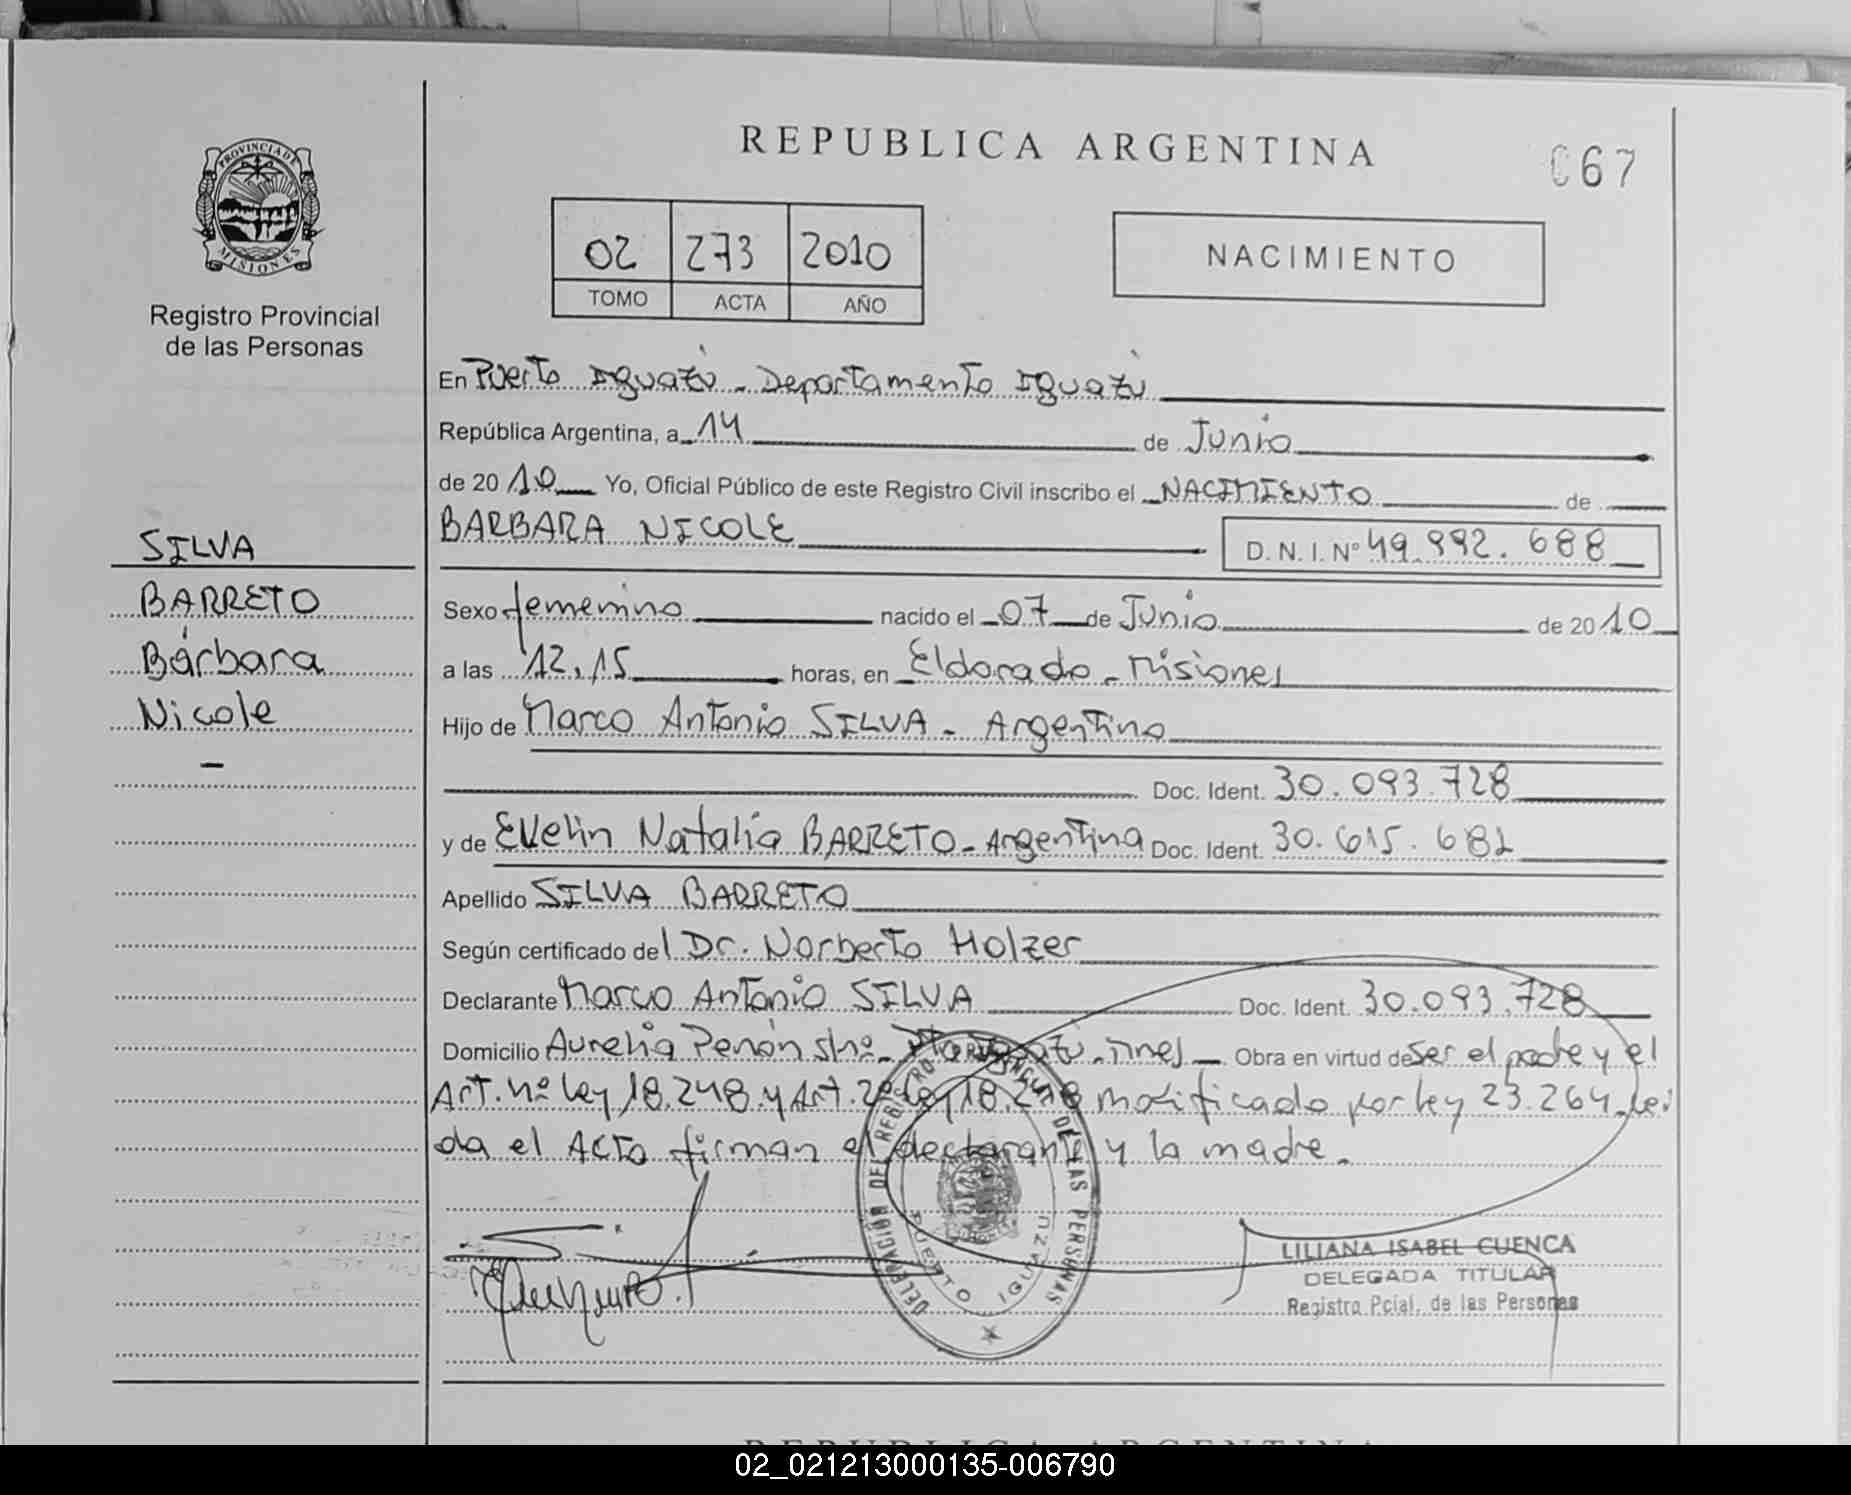 REPUBLICA ARGENTINA
067
PROVINCIA DE MISIONES
Registro Provincial
de las Personas
02 273 2010
TOMO ACTA AÑO
NACIMIENTO
En Puerto Iguazú - Departamento Iguazú
República Argentina, a 14 de Junio
de 2010 Yo, Oficial Público de este Registro Civil inscribo el NACIMIENTO de
BARBARA NICOLE D. N. I. Nº 49.992.688
SILVA
BARRETO
Bárbara
Nicole
Sexo femenino nacido el 07 de Junio de 2010
a las 12,15 horas, en Eldorado - Misiones
Hijo de Marco Antonio SILVA - Argentino
Doc. Ident. 30.093.728
y de Evelin Natalia BARRETO - Argentina Doc. Ident. 30.615.682
Apellido SILVA BARRETO
Según certificado del Dr. Norberto Holzer
Declarante Marco Antonio SILVA Doc. Ident. 30.093.728
Domicilio Aurelia Penón s/nº - Pto Iguazú - Mnes Obra en virtud de ser el padre y el
Art. 4º Ley 18.248 y Art. 2º Ley 18.248 modificado por ley 23.264. Leí
da el Acta firman el declarante y la madre.
DELEGACIÓN DEL REGISTRO PROVINCIAL DE LAS PERSONAS
PUERTO IGUAZU
LILIANA ISABEL CUENCA
DELEGADA TITULAR
Registro Pcial. de las Personas
REPUBLICA ARGENTINA
02_021213000135-006790